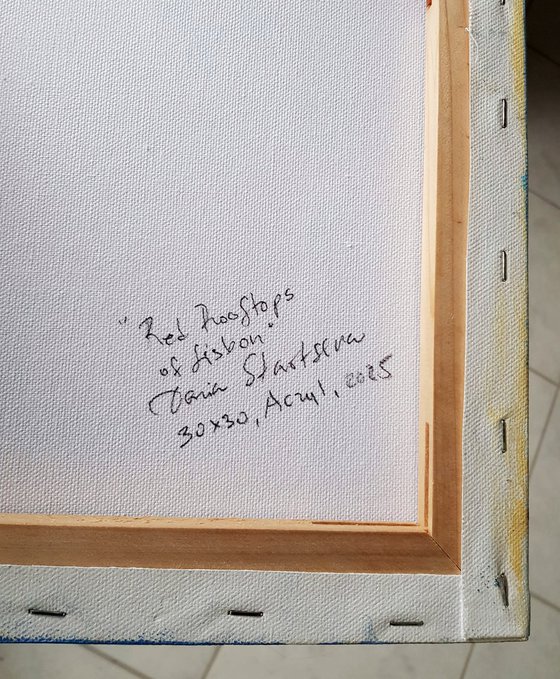 "Red Rooftops
of Lisbon"
Daria Startseva
30x30, Acryl, 2025